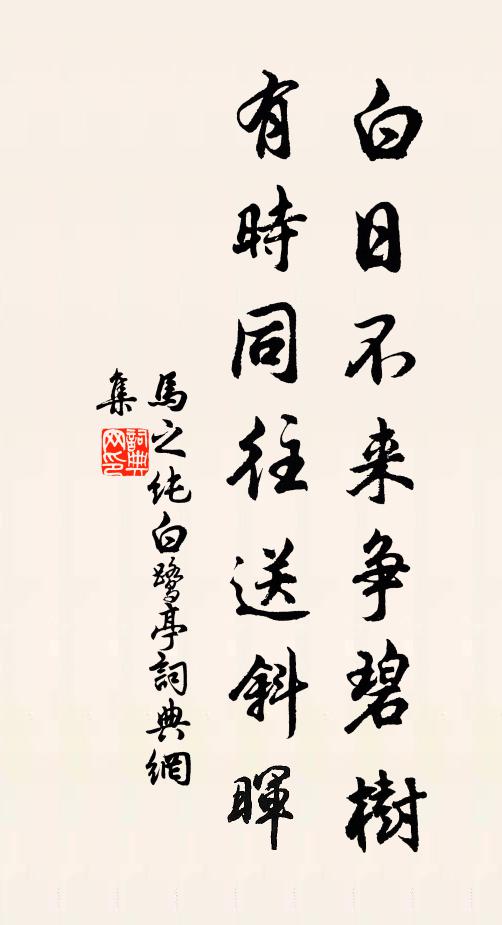 白日不来争碧樹
有時同往送斜暉
馬之纯白鹭亭詞典網
集
詞典网印